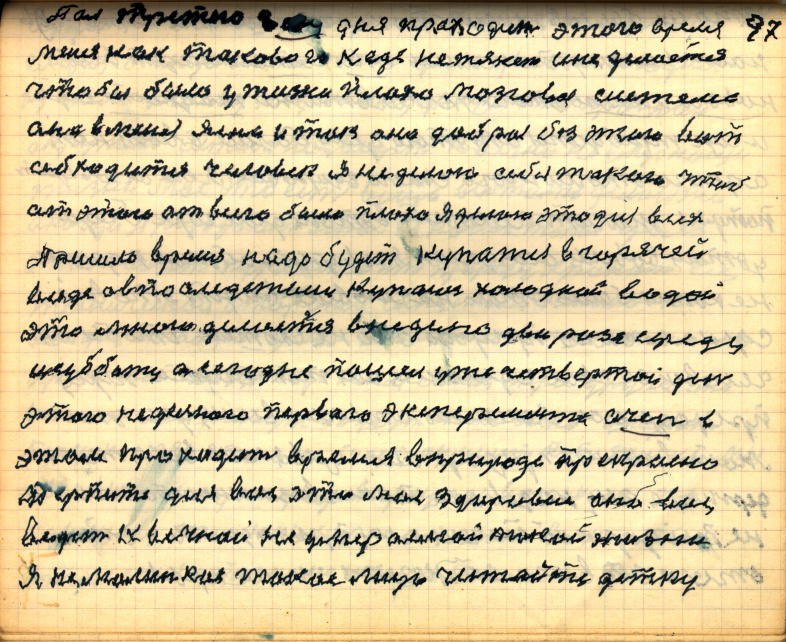 Пол третього дня проходит этого время 97
меня как такового
чтобы было у жизни плохо мозговая система
она в меня и так она добра без этого вот
обходится человек я не делаю себя такого чтоб
от этого от всего было плохо я делаю это для всех
Пришло время надо будет купатся в горячей
воде а впоследствии купатся холодной водой
это много делается в неделю два раза среду
и суботу а сегодне пошел уже четвертой ден
этого неделного первого эксперемента очен в
этом проходит время в природе прекрасно
для вас это мое здоровие оно вас
ведет к вечной не умераемой жизни
я такое читайте детку